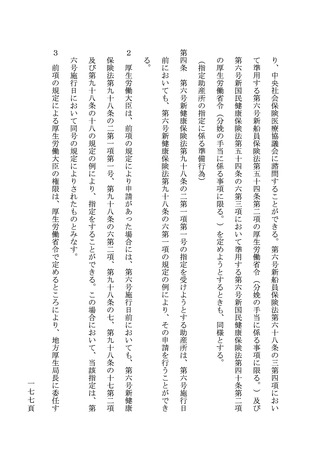 り、中央社会保険医療協議会に諮問することができる。第六号新船員保険法第六十八条の三第四項におい
て準用する第六号新船員保険法第五十四条第二項の厚生労働省令（分娩の手当に係る事項に限る。）及び
第六号新国民健康保険法第五十四条の六第三項において準用する第六号新国民健康保険法第四十条第二項
の厚生労働省令（分娩の手当に係る事項に限る。）を定めようとするときも、同様とする。
（指定助産所の指定に係る準備行為）
第四条　第六号新健康保険法第九十八条の二第一項第一号の指定を受けようとする助産所は、第六号施行日
前においても、第六号新健康保険法第九十八条の六第一項の規定の例により、その申請を行うことができ
る。
２　厚生労働大臣は、前項の規定により申請があった場合には、第六号施行日前においても、第六号新健康
保険法第九十八条の二第一項第一号、第九十八条の六第二項、第九十八条の七、第九十八条の十七第二項
及び第九十八条の十八の規定の例により、指定をすることができる。この場合において、当該指定は、第
六号施行日において同号の規定によりされたものとみなす。
３　前項の規定による厚生労働大臣の権限は、厚生労働省令で定めるところにより、地方厚生局長に委任す
一七七頁